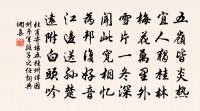 五嶺皆炎熱
宜人獨桂林
梅花萬里外
雪片一冬深
聞此寬相憶
為邦復好音
江邊送孫楚
遠附白頭吟
杜甫寄楊五桂州譚因
州參軍段子之任詞典